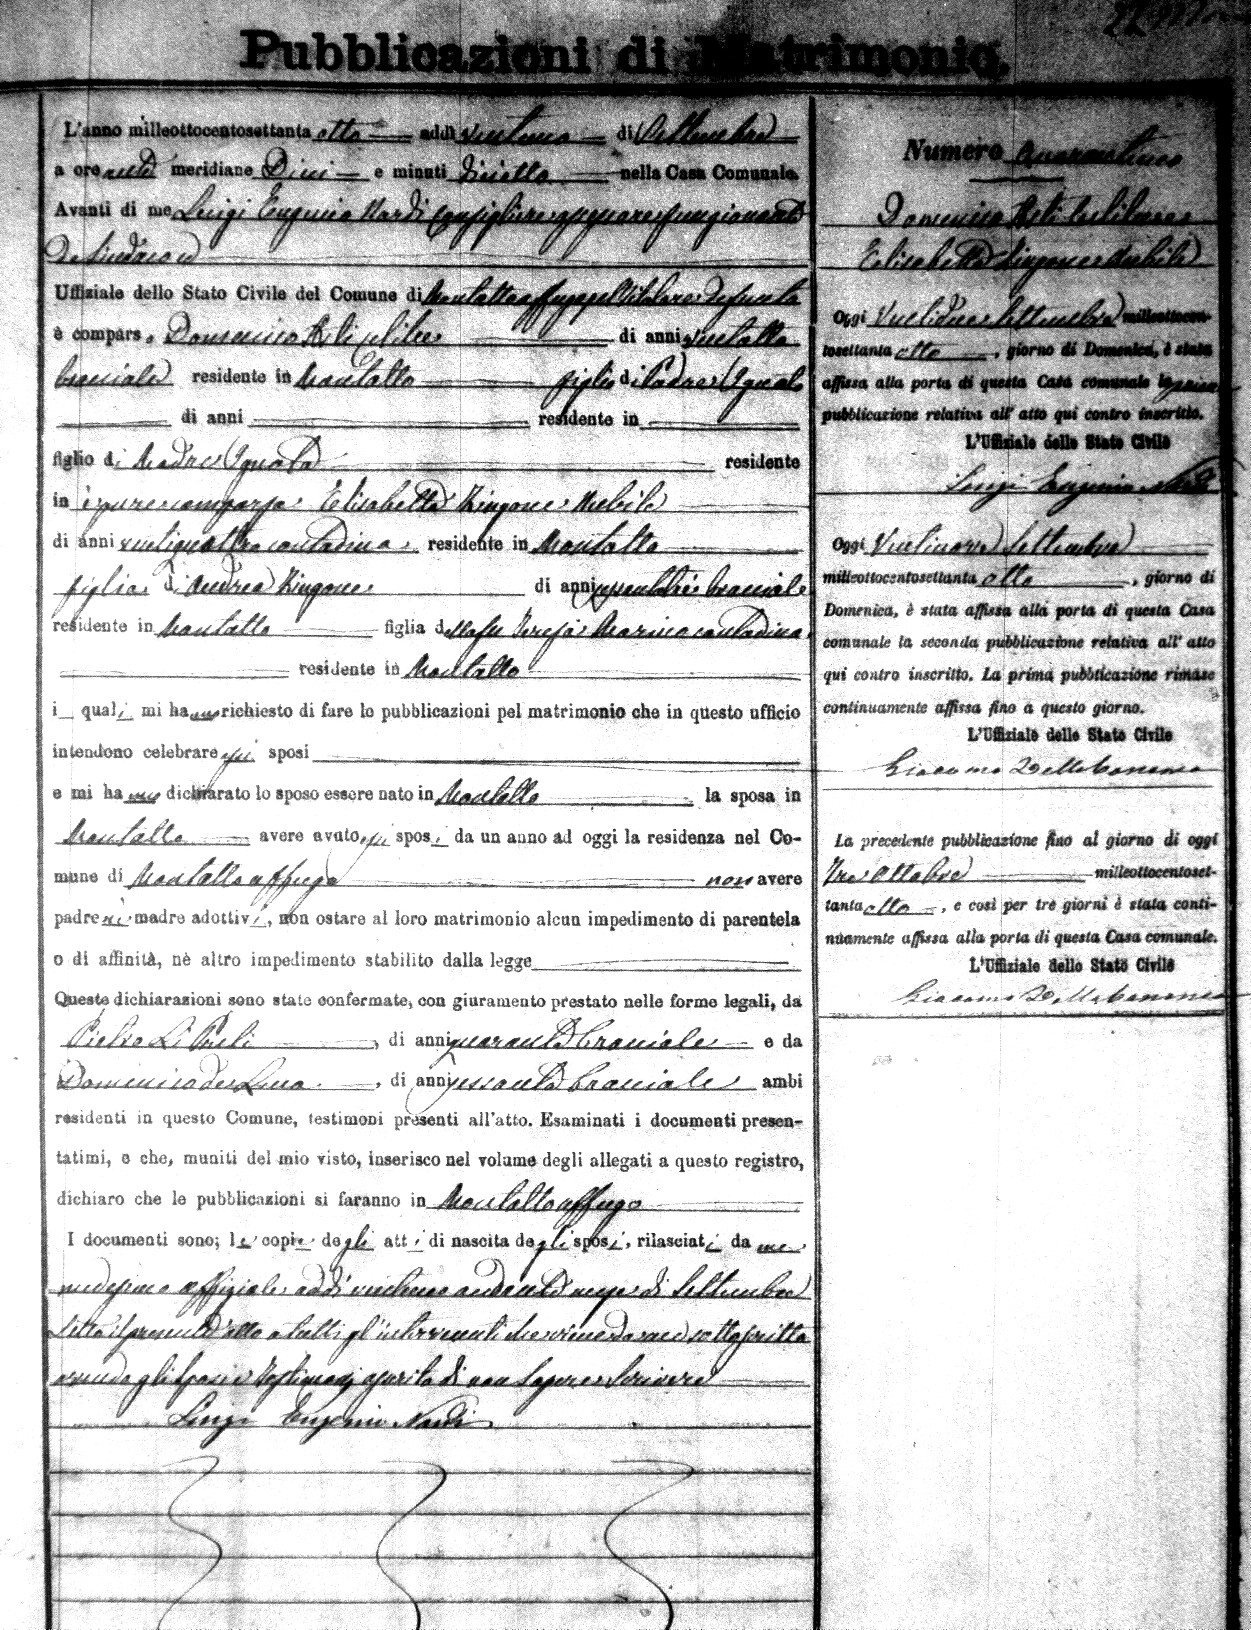 Pubblicazioni di Matrimonio.
L'anno milleottocentosettanta otto addì ventuno di Settembre
a ore anti meridiane Dieci e minuti diciotto nella Casa Comunale.
Avanti di me Luigi Eugenio Nardi Consigliere funzionante
da Sindaco ed
Uffiziale dello Stato Civile del Comune di Montalto Uffugo pel titolare
è compars o Domenico celibe di anni ventotto
bracciale residente in Montalto figlio di Padre Ignoto
di anni residente in
figlio di Madre Ignota residente
in è pure comparsa Elisabetta Ringone Nubile
di anni ventiquattro contadina residente in Montalto
figlia di Andrea Ringone di anni sessantatrè bracciale
residente in Montalto figlia della fu Teresa Marino contadina
residente in Montalto
i quali mi hanno richiesto di fare le pubblicazioni pel matrimonio che in questo ufficio
intendono celebrare gli sposi
e mi hanno dichiarato lo sposo essere nato in Montalto la sposa in
Montalto avere avuto gli sposi da un anno ad oggi la residenza nel Co-
mune di Montalto Uffugo non avere
padre nè madre adottivi, non ostare al loro matrimonio alcun impedimento di parentela
o di affinità, nè altro impedimento stabilito dalla legge
Queste dichiarazioni sono state confermate, con giuramento prestato nelle forme legali, da
Pietro Li Preli, di anni quaranta bracciale e da
Domenico de Luca, di anni sessanta bracciale ambi
residenti in questo Comune, testimoni presenti all'atto. Esaminati i documenti presen-
tatimi, e che, muniti del mio visto, inserisco nel volume degli allegati a questo registro,
dichiaro che le pubblicazioni si faranno in Montalto Uffugo
I documenti sono; le copie degli atti di nascita degli sposi, rilasciati da me
medesimo uffiziale addì ventuno andante mese di Settembre
Letto il presente atto a tutti gl'intervenuti che viene da me sottoscritto
avendo gli sposi e testimoni asserito di non sapere scrivere
Luigi Eugenio Nardi
Numero quarantuno
Domenico celibe
Elisabetta Ringone Nubile
Oggi Ventidue Settembre milleottocen-
tosettanta otto, giorno di Domenica, è stata
affissa alla porta di questa Casa comunale la prima
pubblicazione relativa all' atto qui contro inscritto.
L'Uffiziale dello Stato Civile
Luigi Eugenio Nardi
Oggi Ventinove Settembre
milleottocentosettanta otto, giorno di
Domenica, è stata affissa alla porta di questa Casa
comunale la seconda pubblicazione relativa all' atto
qui contro inscritto. La prima pubblicazione rimase
continuamente affissa fino a questo giorno.
L'Uffiziale dello Stato Civile
Giacomo
La precedente pubblicazione fino al giorno di oggi
Tre Ottobre milleottocentoset-
tanta otto, e così per tre giorni è stata conti-
nuamente affissa alla porta di questa Casa comunale.
L'Uffiziale dello Stato Civile
Giacomo